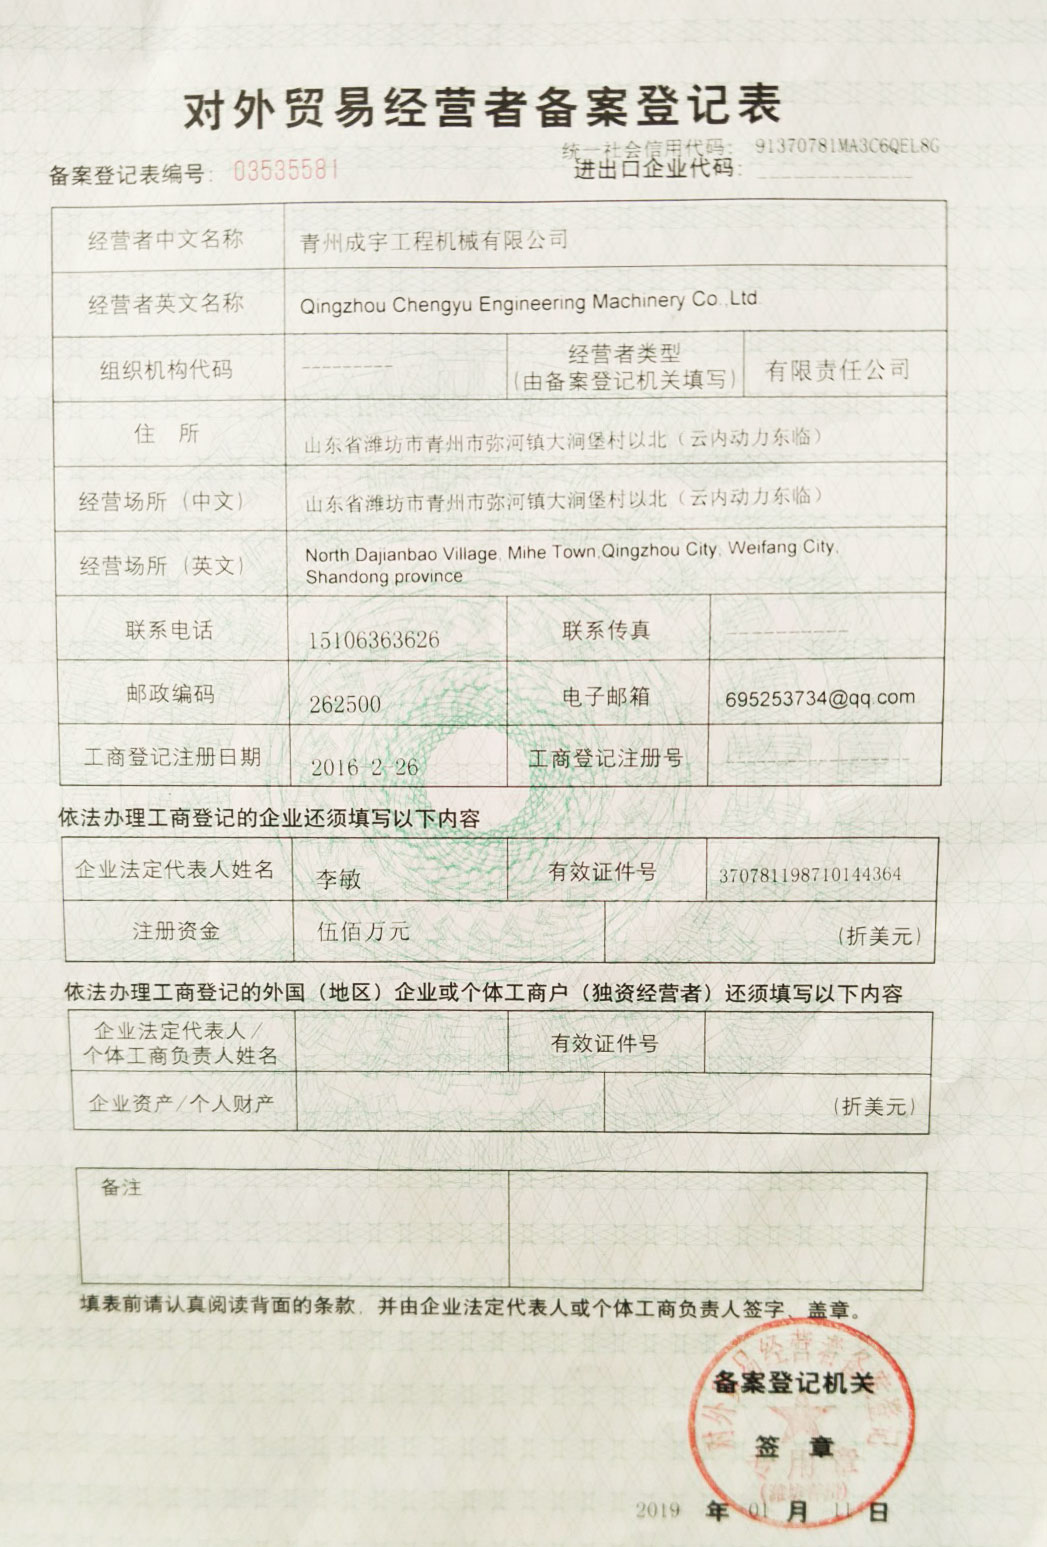 对外贸易经营者备案登记表
统一社会信用代码： 91370781MA3C6QEL8G
备案登记表编号： 03535581
进出口企业代码：
经营者中文名称 青州成宇工程机械有限公司
经营者英文名称 Qingzhou Chengyu Engineering Machinery Co.,Ltd.
组织机构代码 --------- 经营者类型 有限责任公司
(由备案登记机关填写)
住 所 山东省潍坊市青州市弥河镇大涧堡村以北（云内动力东临）
经营场所（中文） 山东省潍坊市青州市弥河镇大涧堡村以北（云内动力东临）
经营场所（英文） North Dajianbao Village, Mihe Town,Qingzhou City, Weifang City,
Shandong province
联系电话 15106363626 联系传真 ------------
邮政编码 262500 电子邮箱 695253734@qq.com
工商登记注册日期 2016-2-26 工商登记注册号
依法办理工商登记的企业还须填写以下内容
企业法定代表人姓名 李敏 有效证件号 370781198710144364
注册资金 伍佰万元 (折美元)
依法办理工商登记的外国（地区）企业或个体工商户（独资经营者）还须填写以下内容
企业法定代表人/
个体工商负责人姓名 有效证件号
企业资产/个人财产 (折美元)
备注
填表前请认真阅读背面的条款，并由企业法定代表人或个体工商负责人签字、盖章。
对外贸易经营者备案登记
备案登记机关
签 章
专用章
2019 年 01 月 11 日